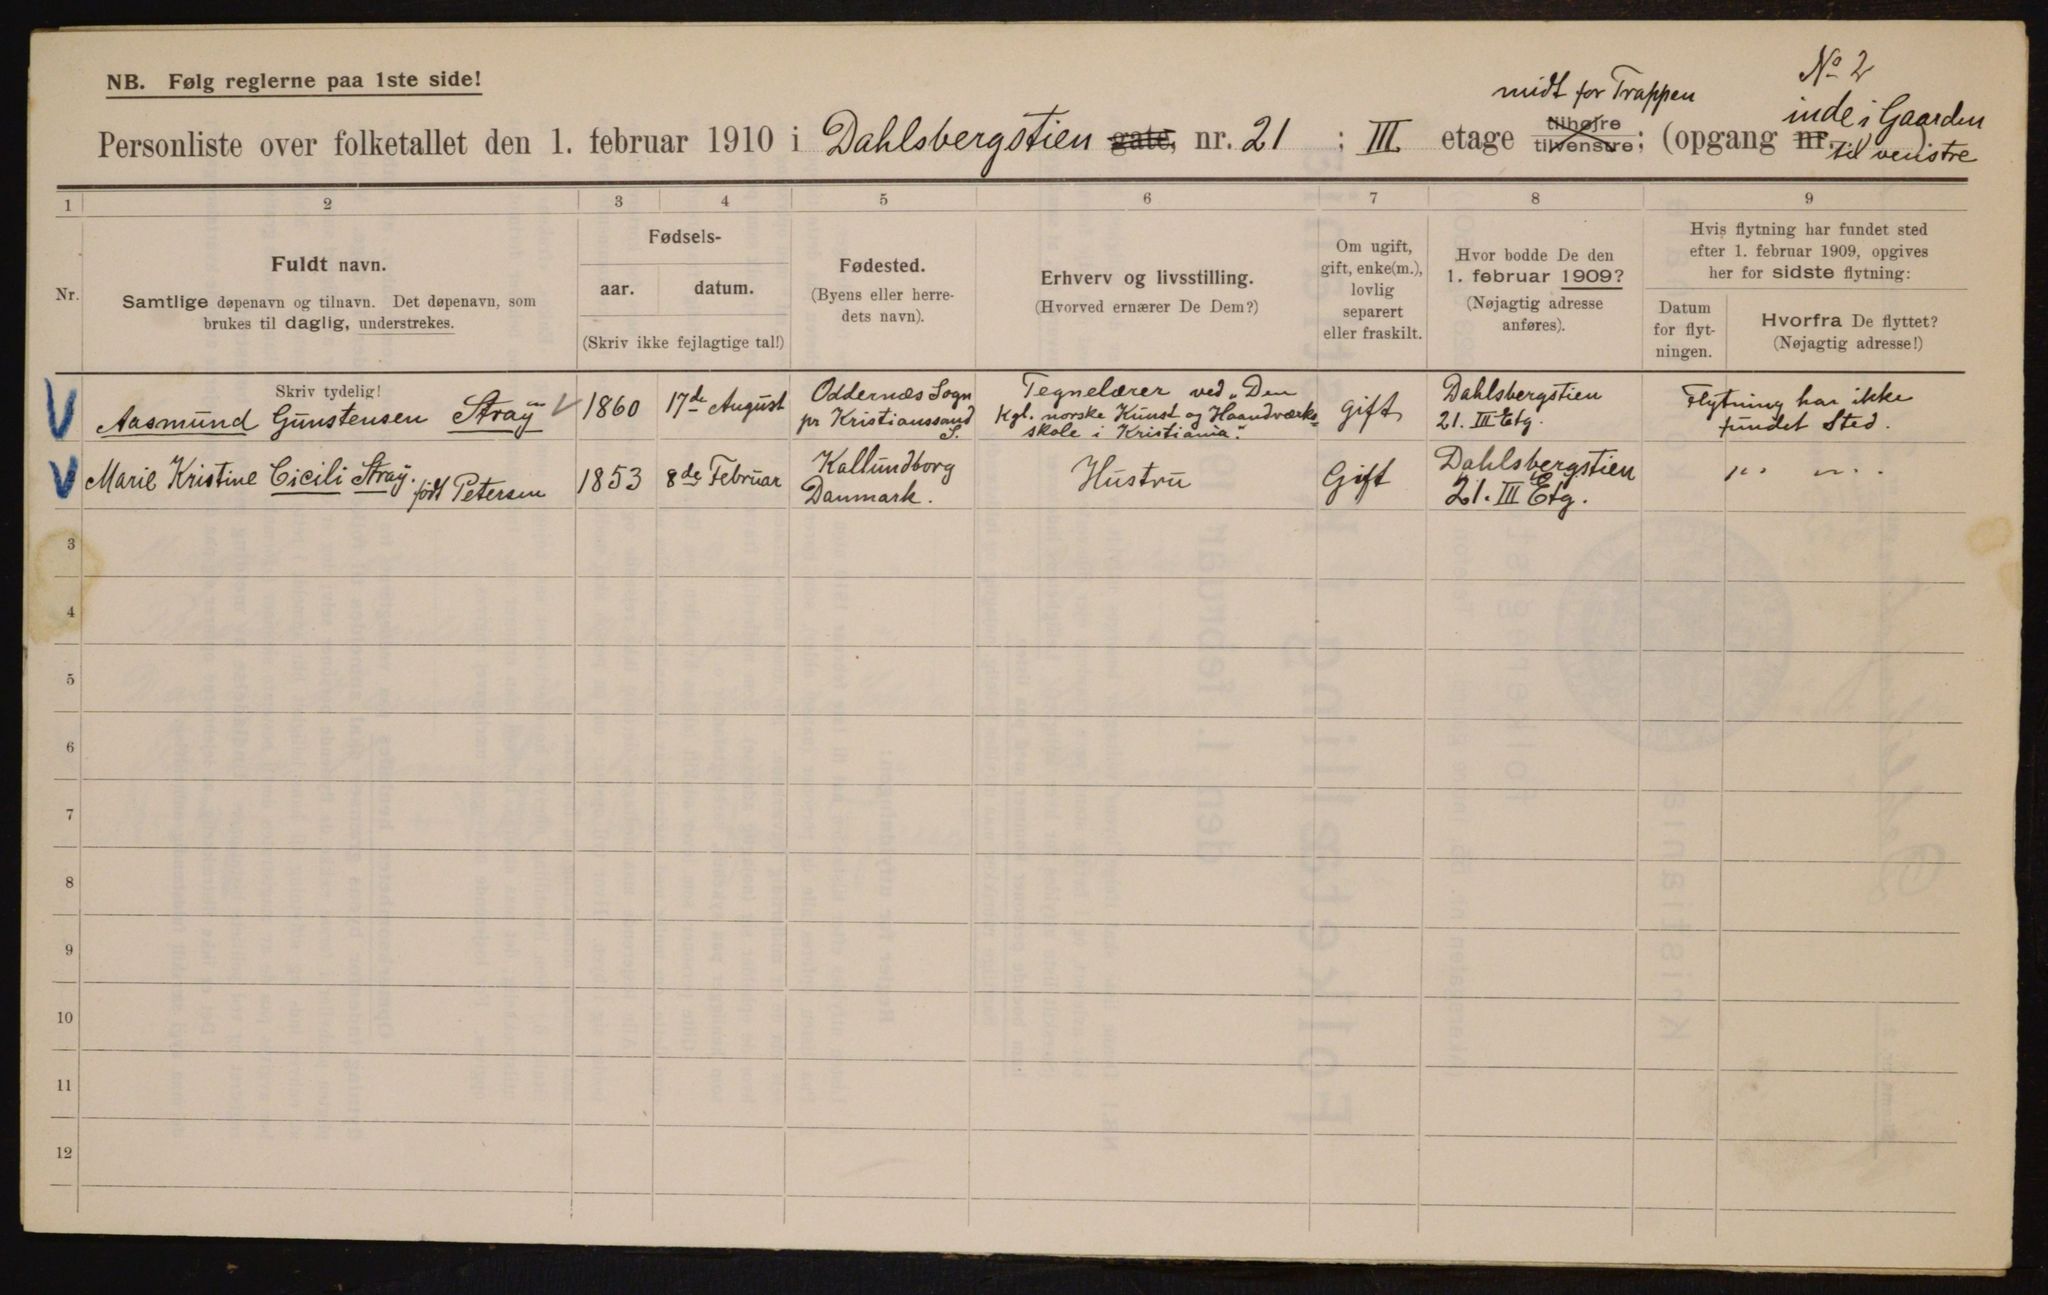 NB. Følg reglerne paa 1ste side!
midt for Trappen
No 2
Personliste over folketallet den 1. februar 1910 i Dahlsbergstien gate, nr. 21 : III etage tilhøjre tilvenstre; (opgang nr.
inde i Gaarden
til venstre
1 2 3 4 5 6 7 8 9
Nr.
Fuldt navn.
Samtlige døpenavn og tilnavn. Det døpenavn, som
brukes til daglig, understrekes.
Fødsels-
aar. datum.
(Skriv ikke fejlagtige tal!)
Fødested.
(Byens eller herre-
dets navn).
Erhverv og livsstilling.
(Hvorved ernærer De Dem?)
Om ugift,
gift, enke(m.),
lovlig
separert
eller fraskilt.
Hvor bodde De den
1. februar 1909?
(Nøjagtig adresse
anføres).
Hvis flytning har fundet sted
efter 1. februar 1909, opgives
her for sidste flytning:
Datum
for flyt-
ningen.
Hvorfra De flyttet?
(Nøjagtig adresse!)
Skriv tydelig!
V Aasmund Gunstensen Stray
1860 17de August
Oddernæs Sogn
pr Kristianssand
S.
Tegnelærer ved „Den
Kgl. norske Kunst og Haandværks=
skole i Kristiania".
Gift
Dahlsbergstien
21. III Etg.
Flytning har ikke
fundet Sted.
V Marie Kristine Cicili Stray.
født Petersen
1853 8de Februar
Kallundborg
Danmark.
Hustru
Gift
Dahlsbergstien
21. III Etg.
" "
3
4
5
6
7
8
9
10
11
12